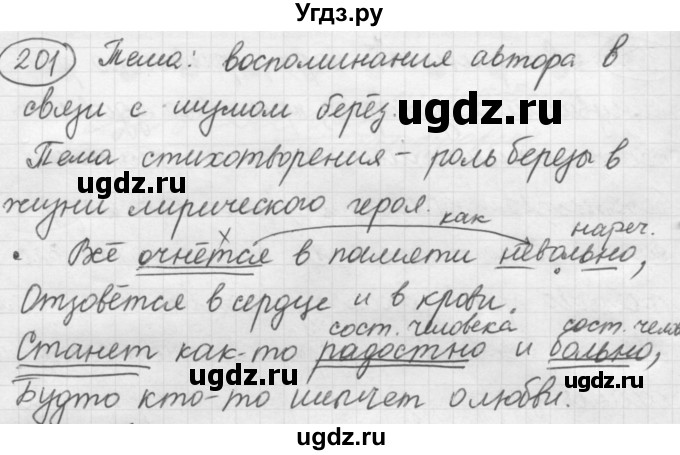 Угдз.ру
201 Тема: воспоминания автора в
связи с шумом берёз.
ugdz.ru
Тема стихотворения – роль березы в
ugdz.ru
жизни лирического героя.
как нареч.
• Всё очнётся в памяти невольно,
Отзовётся в сердце и в крови.
сост. человека сост. челов
Станет как-то радостно и больно,
ugdz.ru ugdz.ru
Будто кто-то шепчет о любви.
ugdz.ru